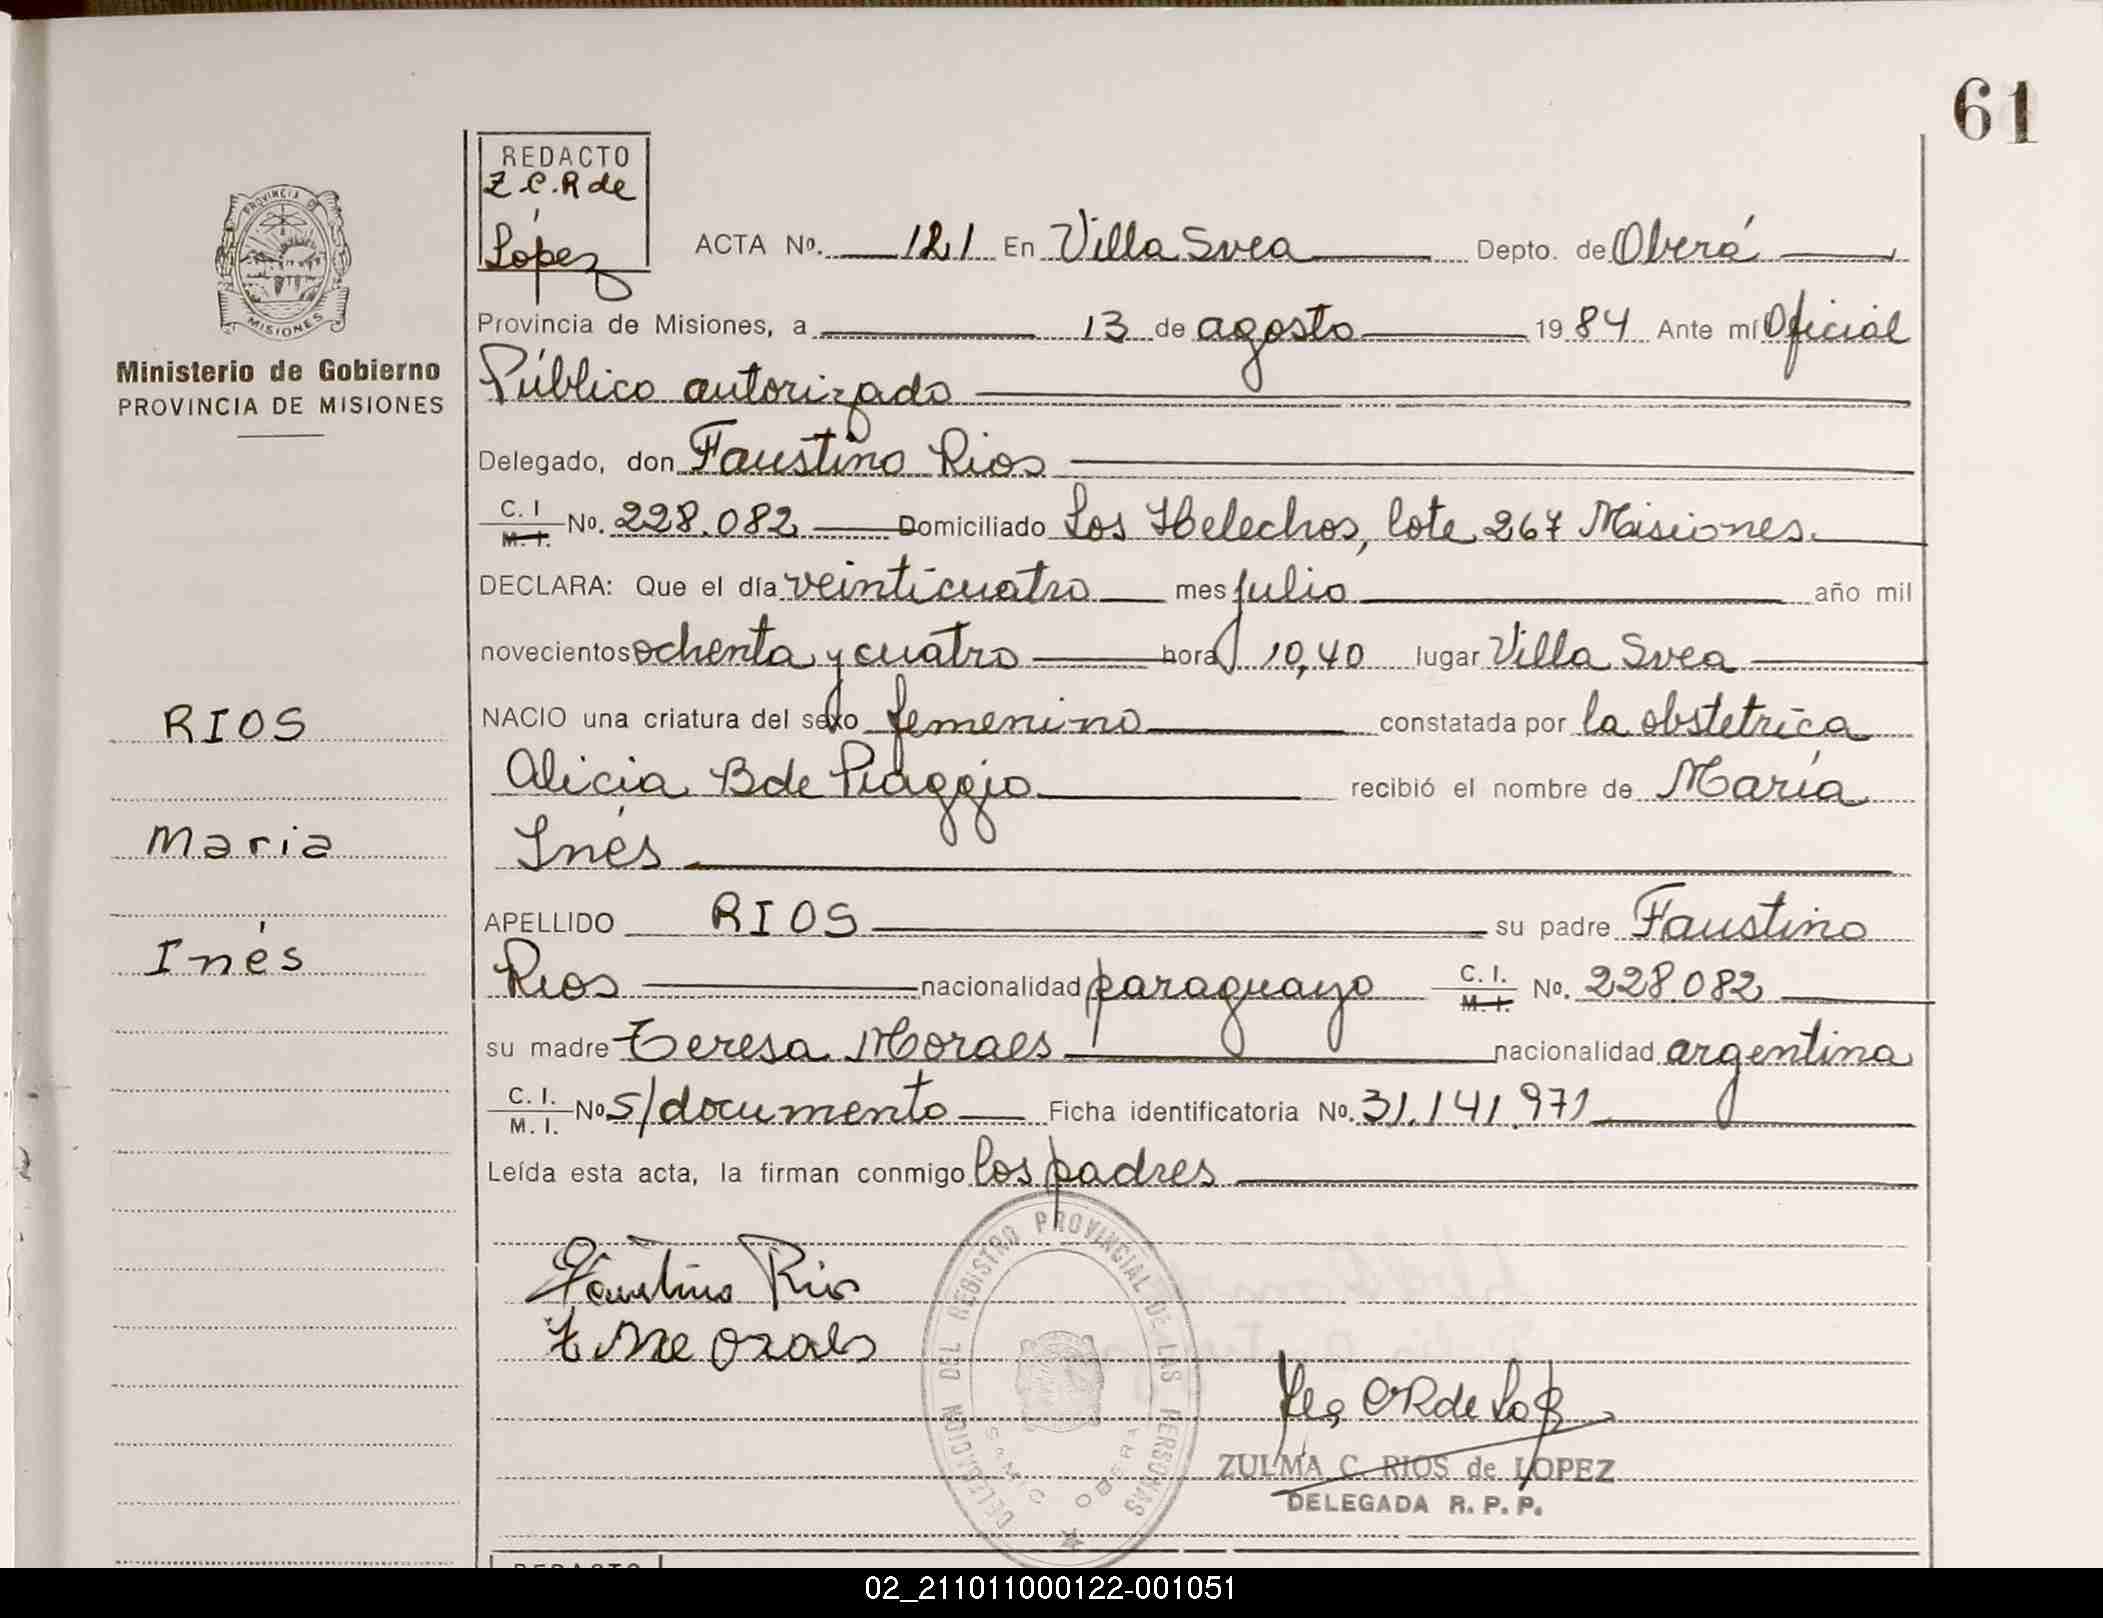 61
REDACTO
Z.C.R de
López
PROVINCIA DE
MISIONES
Ministerio de Gobierno
PROVINCIA DE MISIONES
ACTA Nº. 121 En Villa Svea Depto. de Oberá
Provincia de Misiones, a 13 de agosto 1984 Ante mí Oficial
Público autorizado
Delegado, don Faustino Rios
C. I M. I. Nº. 228.082 Domiciliado Los Helechos, lote 267 Misiones.
DECLARA: Que el día veinticuatro mes julio año mil
novecientos ochenta y cuatro hora 10,40 lugar Villa Svea
NACIO una criatura del sexo femenino constatada por la obstetrica
Alicia B de Piaggio recibió el nombre de María
Inés
RIOS
Maria
Inés
APELLIDO RIOS su padre Faustino
Rios nacionalidad paraguayo C. I. M. I. Nº. 228.082
su madre Teresa Moraes nacionalidad argentina
C. I. M. I. Nº s/documento Ficha identificatoria Nº. 31.141.971
Leída esta acta, la firman conmigo los padres
Faustino Rios
DELEGACION DEL REGISTRO PROVINCIAL DE LAS PERSONAS
OBERA
ZULMA C. RIOS de LOPEZ
DELEGADA R. P. P.
REDACTO
02_211011000122-001051